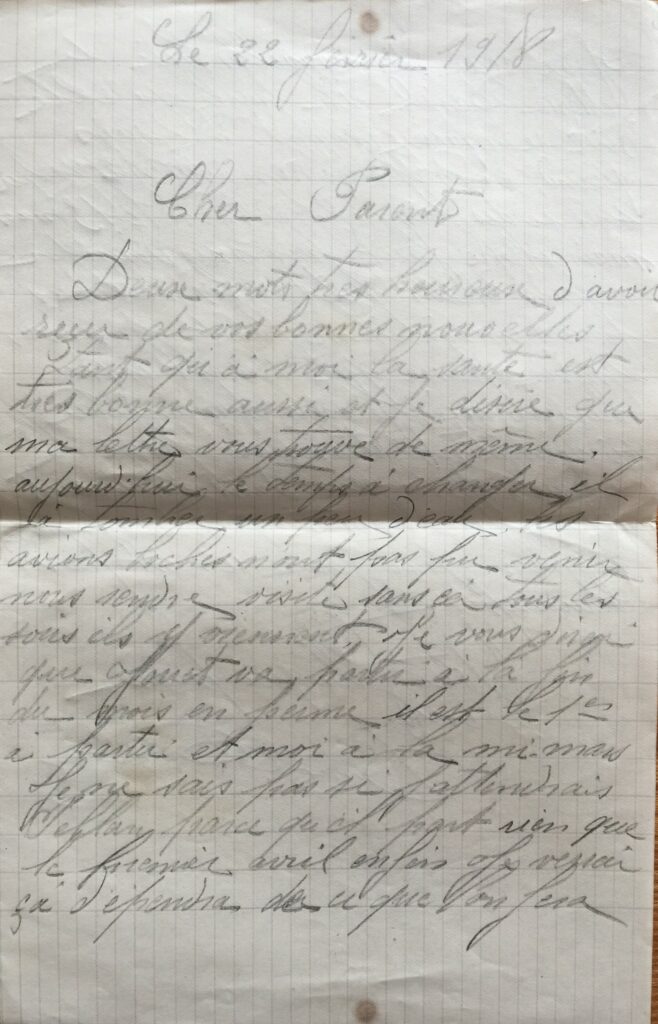 Le 22 février 1918
Cher Parent
Deux mots très heureux d'avoir
reçu de vos bonnes nouvelles
Quant qu'à moi la santé est
très bonne aussi et je désire que
ma lettre vous trouve de même.
aujourd'hui le temps à changer il
à tomber un peu d'eau les
avions boches n'ont pas pu venir
nous rendre visite sans ça tous les
soirs ils y viennent. Je vous dirai
que va partir à la fin
du mois en perme il est le 1er
à partir et moi à la mi-mars
Je ne sais pas si j'attendrais
parce qu'il part rien que
le premier avril enfin je verrai
çà dépendra de ce que l'on fera